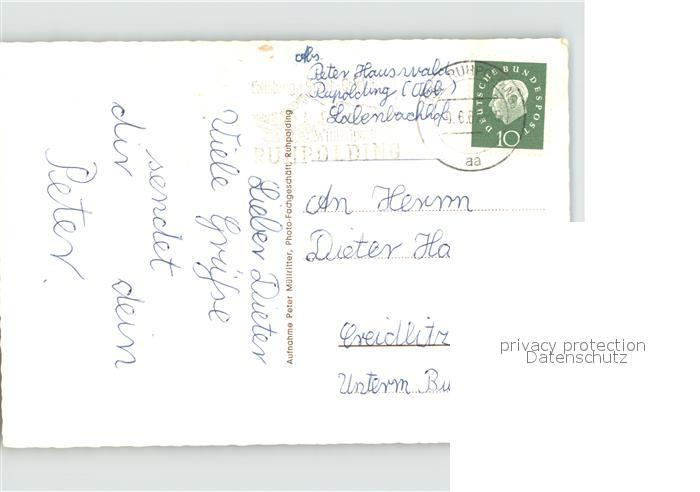 Abs.
Peter Hauswald
Rupolding (Obb)
Labenbachhof
RUHPOLDING
aa
DEUTSCHE BUNDESPOST
10
Lieber Dieter
Viele Grüße
sendet dein
dir
Peter.
Aufnahme Peter Müllritter, Photo-Fachgeschäft, Ruhpolding
An Herrn
Dieter Ha
Creidlitz
Unterm Bu
privacy protection
Datenschutz